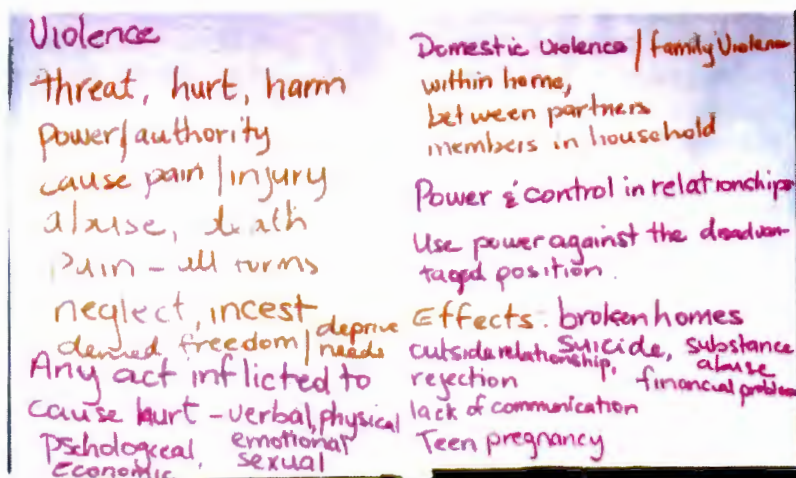 Violence
threat, hurt, harm
power/authority
cause pain/injury
abuse, death
Pain - all forms
neglect, incest
denied freedom/deprive needs
Any act inflicted to
cause hurt - verbal, physical
pschological, emotional
Economic sexual
Domestic violence/family Violence
within home,
between partners
members in household
Power & control in relationships
Use power against the disadvan-
taged position.
Effects. broken homes
outside relationship, suicide, substance abuse
rejection financial problem
lack of communication
Teen pregnancy